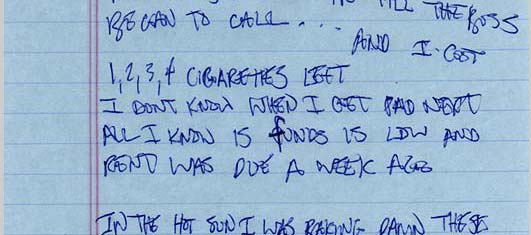 THE BOSS
BEGAN TO CALL...
AND I COST
1, 2, 3, 4 CIGARETTES LEFT
I DONT KNOW WHEN I GET PAD NEXT
ALL I KNOW IS FUNDS IS LOW AND
RENT WAS DUE A WEEK AGO
IN THE HOT SUN I WAS RAKING DAMN THESE